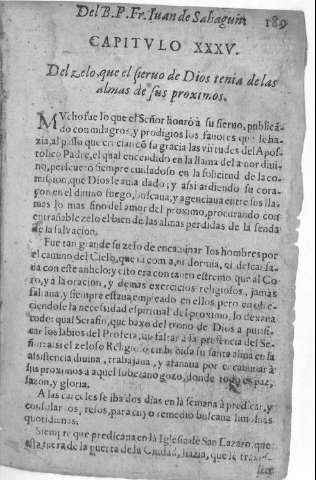 Del B. P. Fr. Iuan de Sahagun. 189
CAPITVLO XXXV.
Del zelo, que el sieruo de Dios tenia de las
almas de sus proximos.
MVcho fue lo que el Señor honró à su sieruo, publicã-
do con milagros, y prodigios los fauores que le ha-
zia, al passo que en su gracia las virtudes del Apos-
tolico Padre, el qual encendido en la llama del amor diui-
no, perseueró siempre cuidadoso en la solicitud de la co-
mision, que Dios le auia dado; y assi ardiendo su cora-
çon en el diuino fuego, buscaua, y agenciaua entre sus lla-
mas lo mas fino del amor del proximo, procurando con
entrañable zelo el bien de las almas perdidas de la senda
de la saluacion.
Fue tan grande su zelo de encaminar los hombres por
el camino del Cielo, que ni comia, ni dormia, ni descansa-
ua con este anhelo; y esto era con tanto estremo, que al Co-
ro, y à la oracion, y demas exercicios religiosos, jamàs
faltaua, y siempre estaua empleado en ellos, pero en
ciendose la necesidad espiritual del proximo, lo dexaua
todo: qual Serafin, que baxò del trono de Dios à purifi-
car los labios del Profeta, sin faltar à la presencia del Se-
ñor: assi el zeloso Religioso su santa alma en la
asistencia diuina, trabajaua, y afanaua por encaminar à
sus proximos a aquel soberano gozo, donde todo es paz,
sazon, y gloria.
A las carceles se iba dos dias en la semana à predicar, y
consolar los presos, para cuyo remedio buscaua limosnas
quotidianas.
Siempre que predicaua en la Iglesia de San Lazaro, que
està fuera de la puerta de la Ciudad, hazia, que le